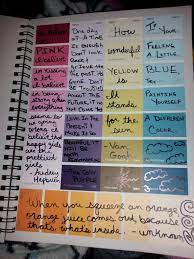 PINK
I believe
in kissing,
a lot
I believe
in being
strong when
everything
seems to
go wrong.
I believe
happy girls
are the
prettiest
girls
- Audrey
Hepburn
One day
at a Time
is enough
Don't look
Back and
the past
is gone.
Don't Be
Troubled
about the
Future, for
it has not
Come
Live In The
Present
Beautiful
The Color Purple
How
wonderful
YELLOW
is
It
stands
for
the sun
- Van
Gogh
If
Your
Feeling
A Little
BLUE,
Try
Painting
Yourself
A Different
Color
When you squeeze an orange
orange juice comes out, because
thats whats inside. ~ unknown